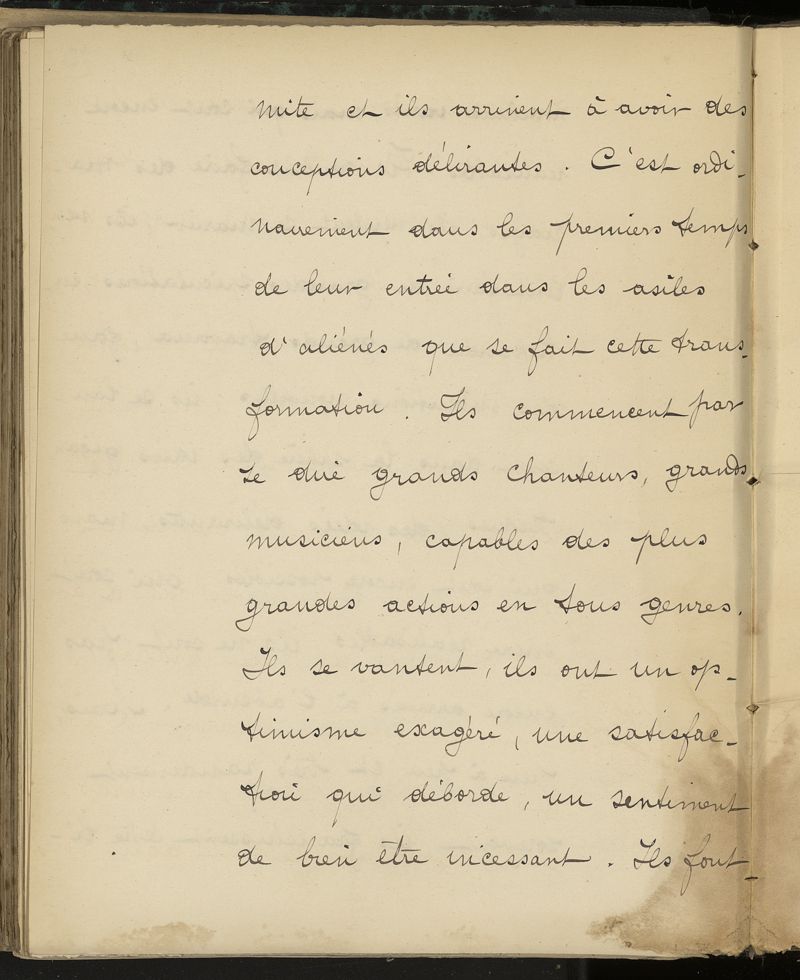 mite et ils arrivent à avoir des
conceptions délirantes. C'est ordi-
nairement dans les premiers temps
de leur entrée dans les asiles
d'aliénés que se fait cette trans-
formation. Ils commencent par
se dire grands chanteurs, grands
musiciens, capables des plus
grandes actions en tous genres.
Ils se vantent, ils ont un op-
timisme exagéré, une satisfac-
tion qui déborde, un sentiment
de bien être incessant. Ils font